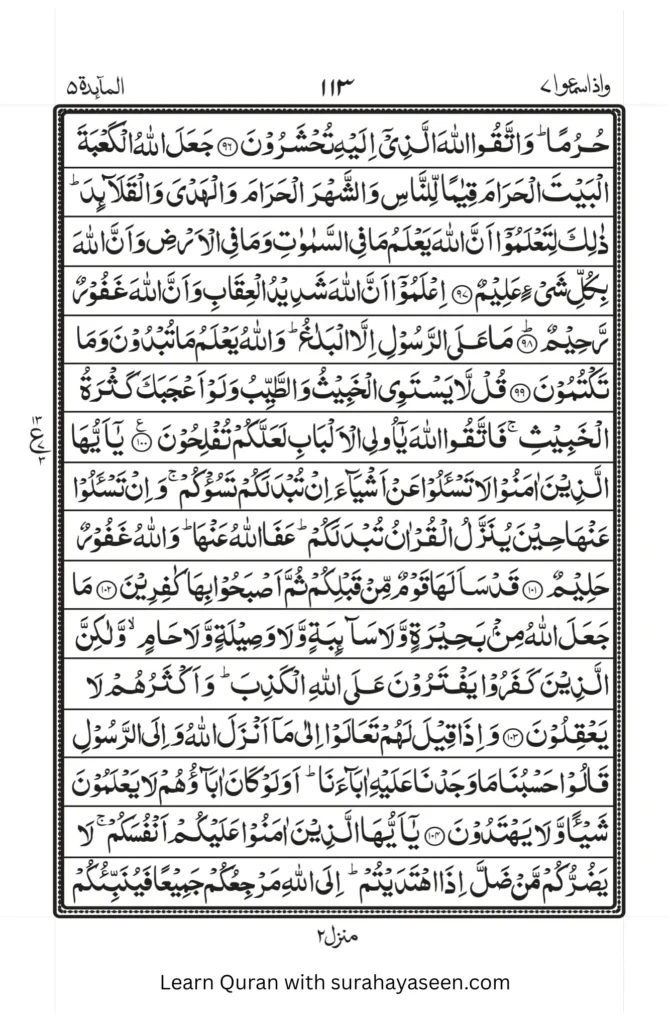 واذاسمعوا۷ ۱۱۳ المآىِٕدة۵
حُرُمًا ؕ وَاتَّقُوا اللّٰهَ الَّذِىْۤ اِلَيْهِ تُحْشَرُوْنَ ۝۹۶ جَعَلَ اللّٰهُ الْكَعْبَةَ
الْبَيْتَ الْحَرَامَ قِيٰمًا لِّلنَّاسِ وَالشَّهْرَ الْحَرَامَ وَالْهَدْىَ وَالْقَلَآىِٕدَ ؕ
ذٰلِكَ لِتَعْلَمُوْۤا اَنَّ اللّٰهَ يَعْلَمُ مَا فِى السَّمٰوٰتِ وَمَا فِى الْاَرْضِ وَاَنَّ اللّٰهَ
بِكُلِّ شَىْءٍ عَلِيْمٌ ۝۹۷ اِعْلَمُوْۤا اَنَّ اللّٰهَ شَدِيْدُ الْعِقَابِ وَاَنَّ اللّٰهَ غَفُوْرٌ
رَّحِيْمٌ ؕ۝۹۸ مَا عَلَى الرَّسُوْلِ اِلَّا الْبَلٰغُ ؕ وَاللّٰهُ يَعْلَمُ مَا تُبْدُوْنَ وَمَا
تَكْتُمُوْنَ ۝۹۹ قُلْ لَّا يَسْتَوِى الْخَبِيْثُ وَالطَّيِّبُ وَلَوْ اَعْجَبَكَ كَثْرَةُ
الْخَبِيْثِ ۚ فَاتَّقُوا اللّٰهَ يٰۤاُولِى الْاَلْبَابِ لَعَلَّكُمْ تُفْلِحُوْنَ ۝۱۰۰ع يٰۤاَيُّهَا
۱۳ ع ۷ ۳
الَّذِيْنَ اٰمَنُوْا لَا تَسْـَٔلُوْا عَنْ اَشْيَآءَ اِنْ تُبْدَ لَكُمْ تَسُؤْكُمْ ۚ وَاِنْ تَسْـَٔلُوْا
عَنْهَا حِيْنَ يُنَزَّلُ الْقُرْاٰنُ تُبْدَ لَكُمْ ؕ عَفَا اللّٰهُ عَنْهَا ؕ وَاللّٰهُ غَفُوْرٌ
حَلِيْمٌ ۝۱۰۱ قَدْ سَاَلَهَا قَوْمٌ مِّنْ قَبْلِكُمْ ثُمَّ اَصْبَحُوْا بِهَا كٰفِرِيْنَ ۝۱۰۲ مَا
جَعَلَ اللّٰهُ مِنْۢ بَحِيْرَةٍ وَّلَا سَآىِٕبَةٍ وَّلَا وَصِيْلَةٍ وَّلَا حَامٍ ۙ وَّلٰكِنَّ
الَّذِيْنَ كَفَرُوْا يَفْتَرُوْنَ عَلَى اللّٰهِ الْكَذِبَ ؕ وَاَكْثَرُهُمْ لَا
يَعْقِلُوْنَ ۝۱۰۳ وَاِذَا قِيْلَ لَهُمْ تَعَالَوْا اِلٰى مَاۤ اَنْزَلَ اللّٰهُ وَاِلَى الرَّسُوْلِ
قَالُوْا حَسْبُنَا مَا وَجَدْنَا عَلَيْهِ اٰبَآءَنَا ؕ اَوَلَوْ كَانَ اٰبَآؤُهُمْ لَا يَعْلَمُوْنَ
شَيْـًٔا وَّلَا يَهْتَدُوْنَ ۝۱۰۴ يٰۤاَيُّهَا الَّذِيْنَ اٰمَنُوْا عَلَيْكُمْ اَنْفُسَكُمْ ۚ لَا
يَضُرُّكُمْ مَّنْ ضَلَّ اِذَا اهْتَدَيْتُمْ ؕ اِلَى اللّٰهِ مَرْجِعُكُمْ جَمِيْعًا فَيُنَبِّئُكُمْ
منزل۲
Learn Quran with surahayaseen.com